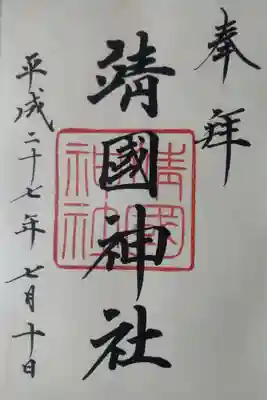 奉拜
靖國神社
靖國神社
平成二十七年 七月十日